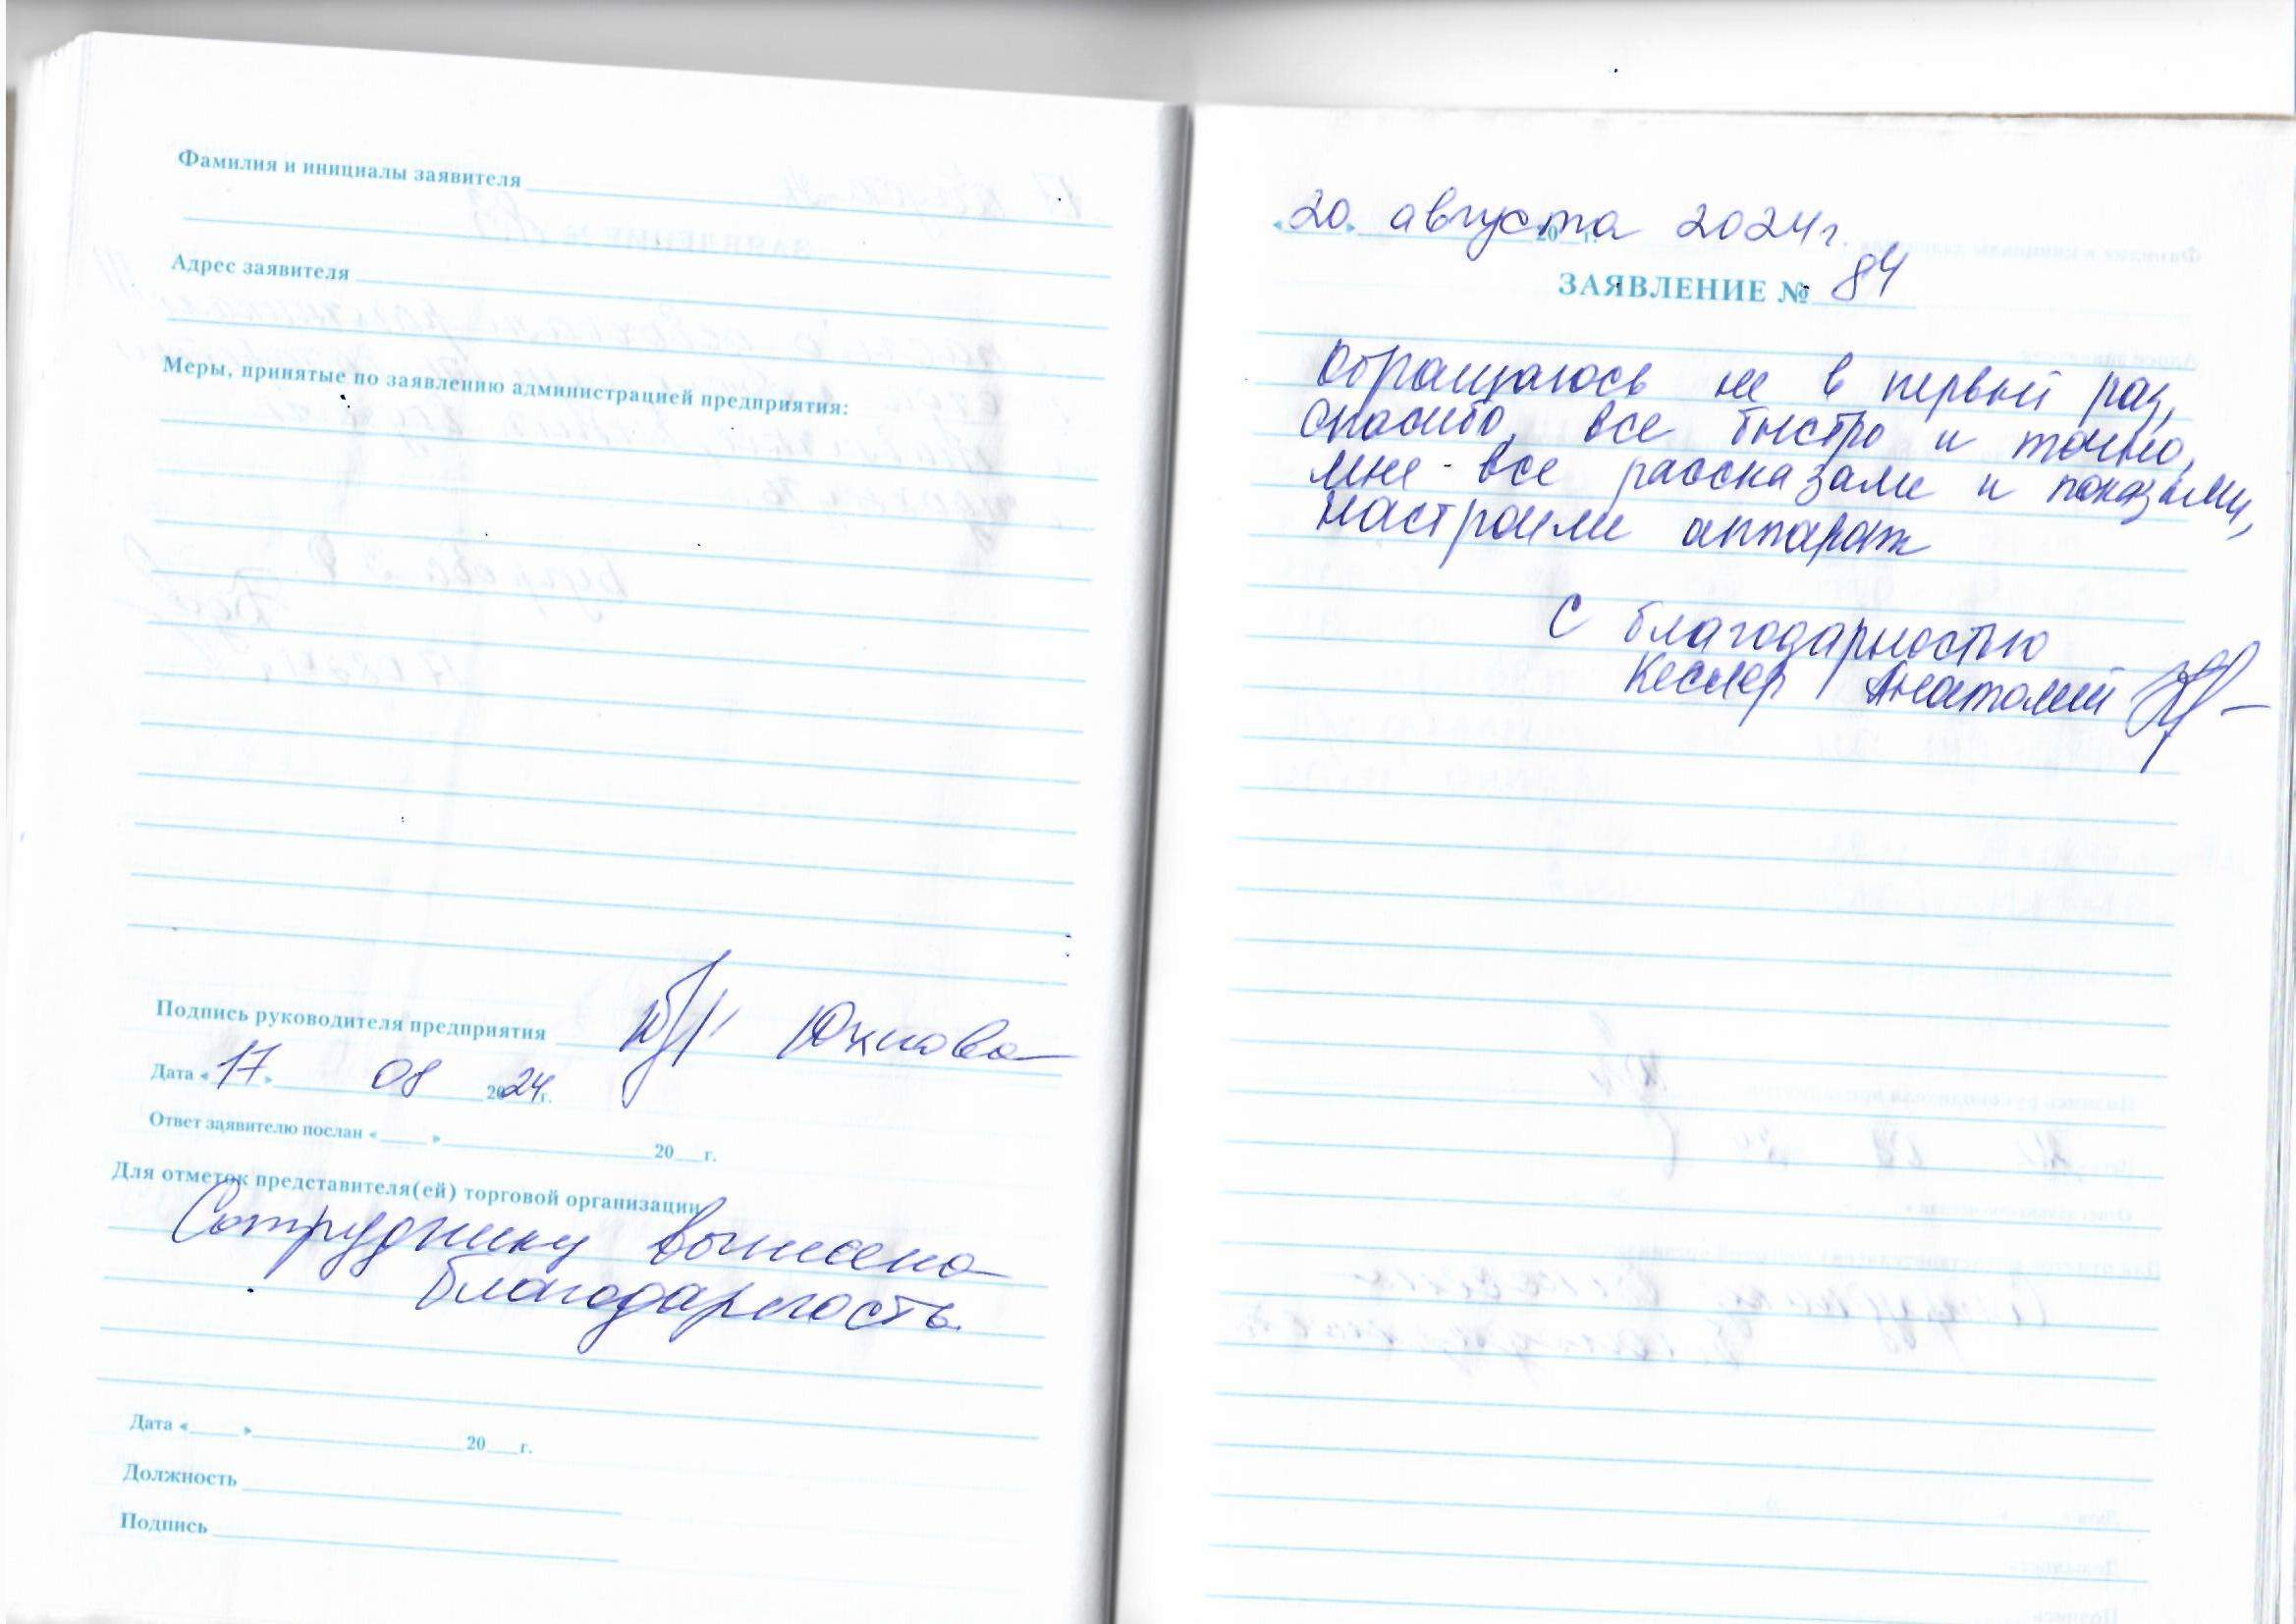 Фамилия и инициалы заявителя
Адрес заявителя
Меры, принятые по заявлению администрацией предприятия:
Подпись руководителя предприятия
Дата «17» 08 2024г.
Ответ заявителю послан « » 20 г.
Для отметок представителя(ей) торговой организации
Сотруднику вынесена
благодарность.
Дата « » 20 г.
Должность
Подпись
«20» августа 2024г.
ЗАЯВЛЕНИЕ № 84
Обращаюсь не в первый раз,
спасибо, все быстро и точно,
мне все рассказали и показали,
настроили аппарат
С благодарностью
Кеслер Анатолий